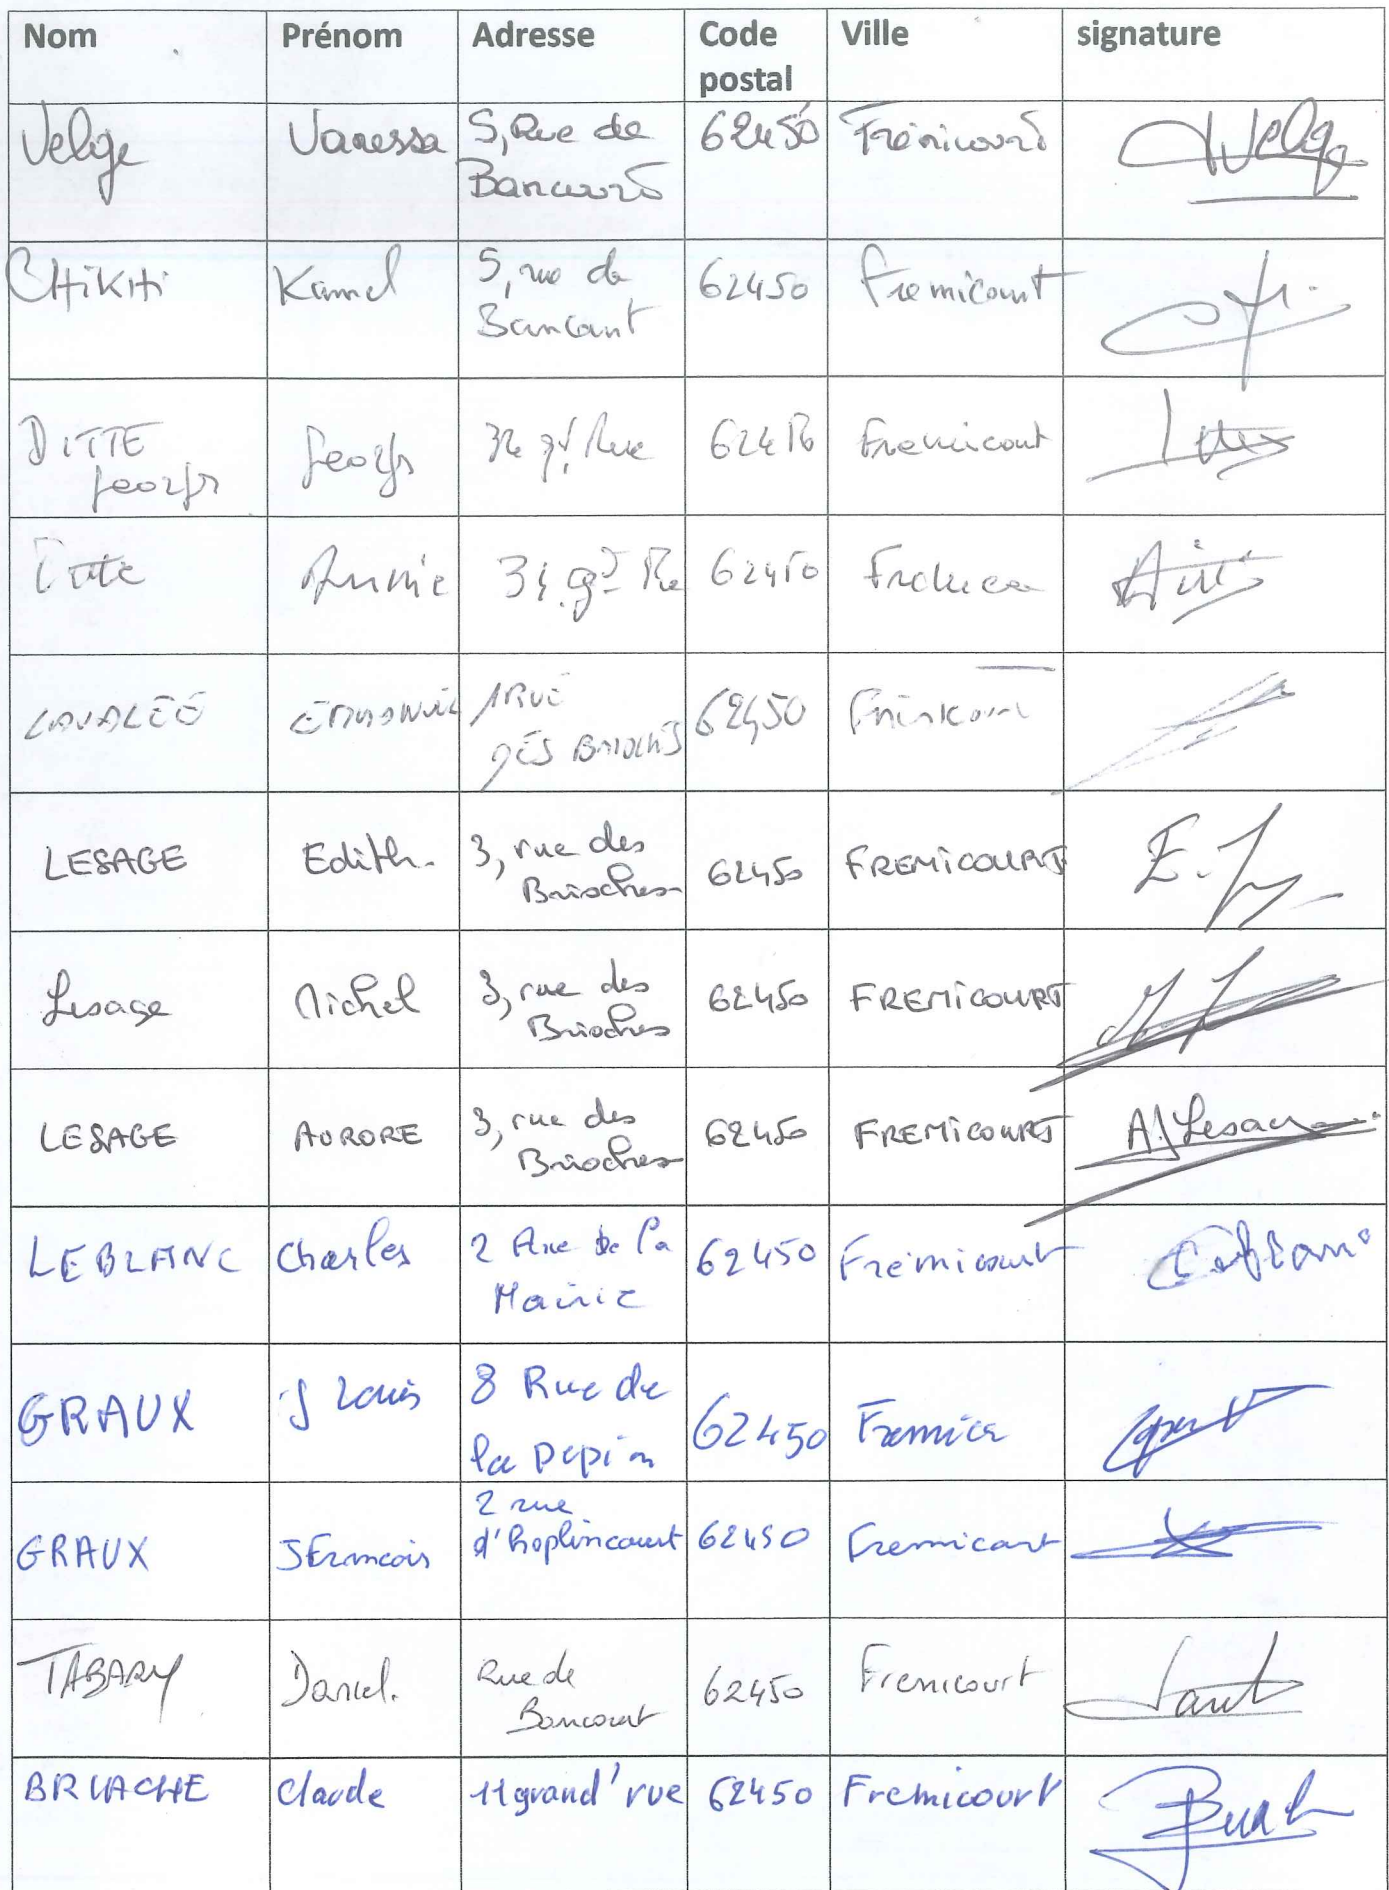 Nom Prénom Adresse Code postal Ville signature
Velge Vanessa 5, Rue de Bancourt 62450 Frémicourt Velge
CHiKiti Kamel 5, rue de Bancourt 62450 Fremicourt
DiTTE Georges Georges gd Rue Fremicourt
Ditte Annie gd Rue 62450
LAVALÉÉ 1 RUE DES 62450
LESAGE Edith 3, rue des Brioches 62450 FREMiCOURT
Lesage Michel 3, rue des Brioches 62450 FREMICOURT
LESAGE AURORE 3, rue des Brioches 62450 FREMiCOURT A. Lesage
LEBLANC Charles 2 Rue de la Mairie 62450 Fremicourt
GRAUX J Louis 8 Rue de la 62450 Fremic
GRAUX JFrancois 2 rue 62450 Fremicourt
TABARY Daniel. Rue de Bancourt 62450 Fremicourt
BRUACHE Claude 11 grand'rue 62450 Fremicourt